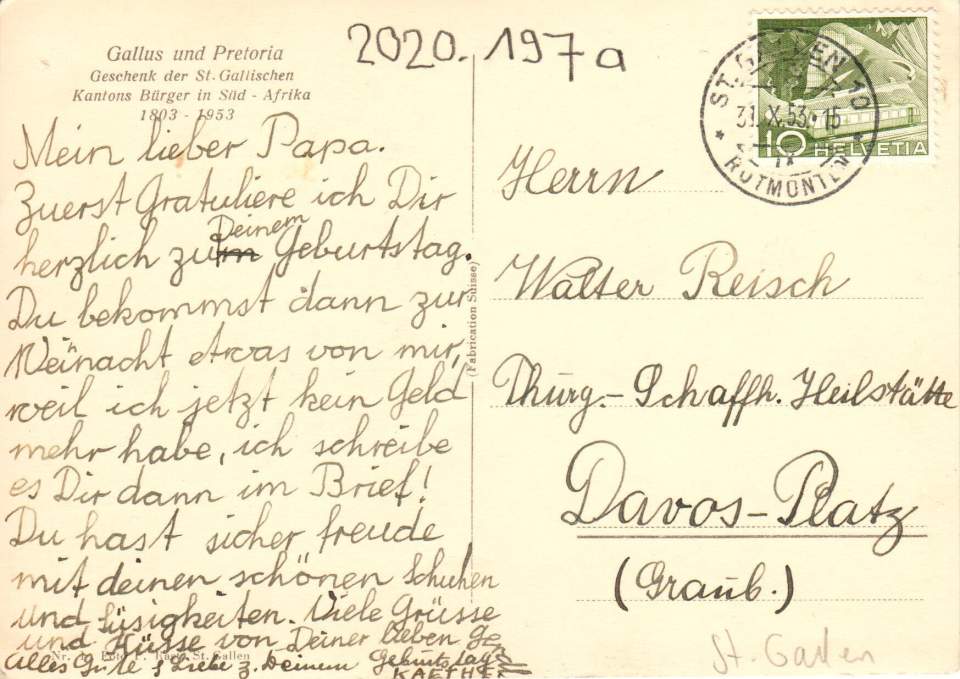 Gallus und Pretoria
Geschenk der St. Gallischen
Kantons Bürger in Süd - Afrika
1803 - 1953
2020.197a
ST. GALLEN 10
31. X. 53. 15
ROTMONTEN
10 HELVETIA
Mein lieber Papa.
Zuerst Gratuliere ich Dir
herzlich zum Deinem Geburtstag.
Du bekommst dann zur
Weihnacht etwas von mir,
weil ich jetzt kein Geld
mehr habe, ich schreibe
es Dir dann im Brief!
Du hast sicher freude
mit deinen schönen Schuhen
und Süsigkeiten. Viele Grüsse
und Küsse von Deiner lieben
Alles Liebe z. Deinem Geburtstag
St. Gallen
(Fabrication Suisse)
Herrn
Walter Reisch
Thurg.-Schaffh. Heilstätte
Davos-Platz
(Graub.)
St. Gallen